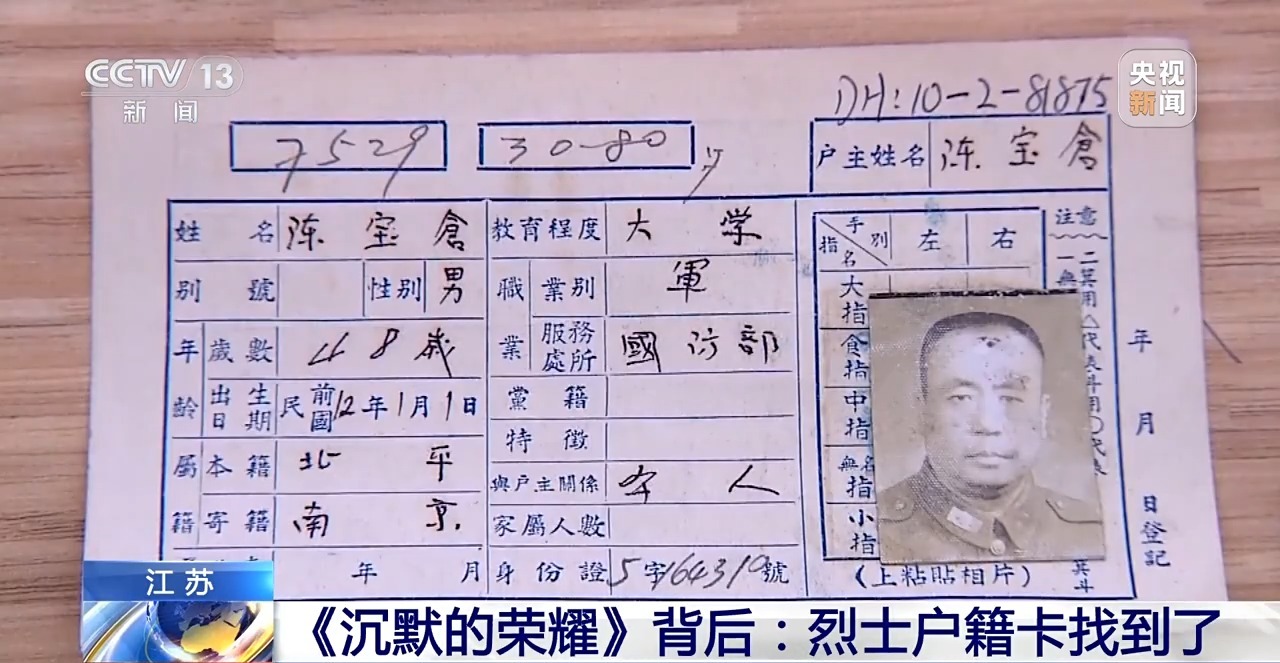 CCTV 13
新闻
央视
新闻
DH:10-2-81875
7529
30-80
户主姓名 陈宝倉
姓名 陈宝倉 教育程度 大学
别號 性别 男 職業 業别 軍
年龄 歲數 48歲 服務處所 國防部
出生日期 民前國12年1月1日 黨籍
特徵
屬籍 本籍 北平 與户主關係 本人
寄籍 南京 家屬人數
年 月 身份證 5字164319號
手别 指名 左 右
大指
食指
中指
無名指
小指
(上粘貼相片)
注意
年 月 日登記
江苏
《沉默的荣耀》背后：烈士户籍卡找到了